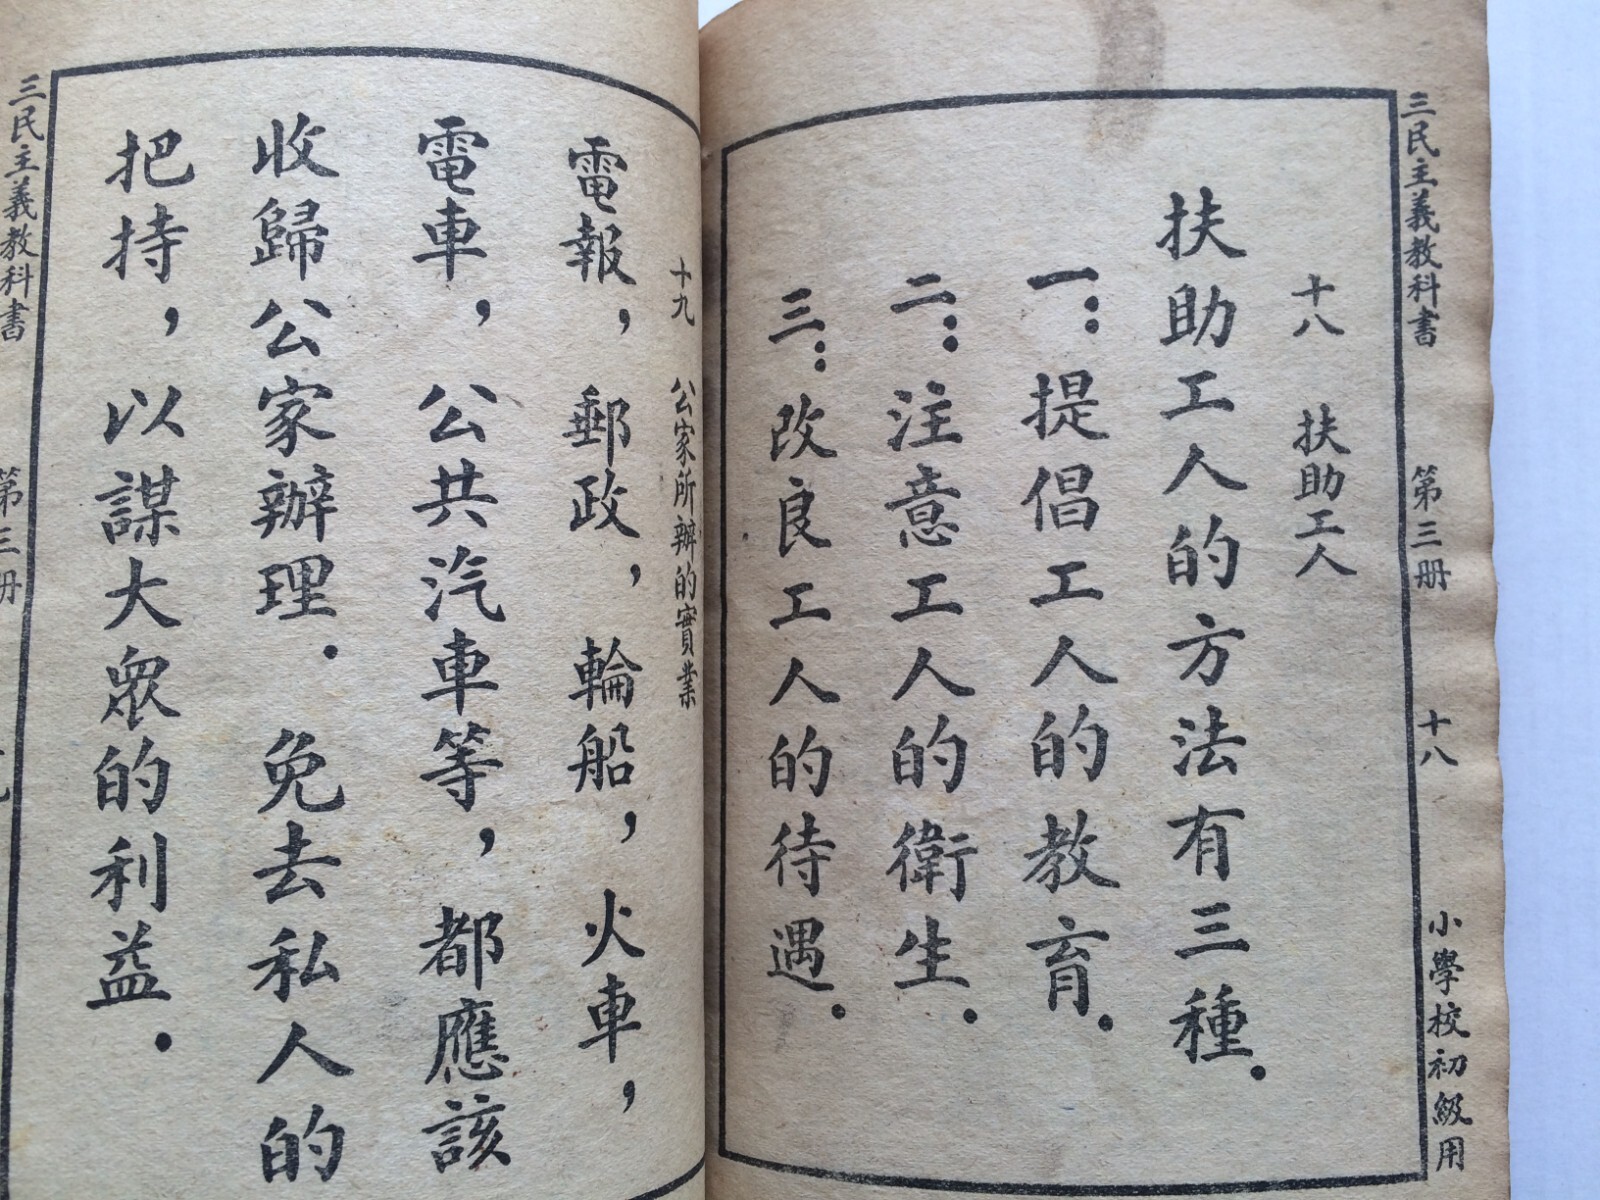 三民主義教科書 第三册 十八 小學校初級用
十八 扶助工人
扶助工人的方法有三種．
一：提倡工人的教育．
二：注意工人的衛生．
三：改良工人的待遇．
十九 公家所辦的實業
電報，郵政，輪船，火車，
電車，公共汽車等，都應該
收歸公家辦理．免去私人的
把持，以謀大眾的利益．
三民主義教科書 第三册